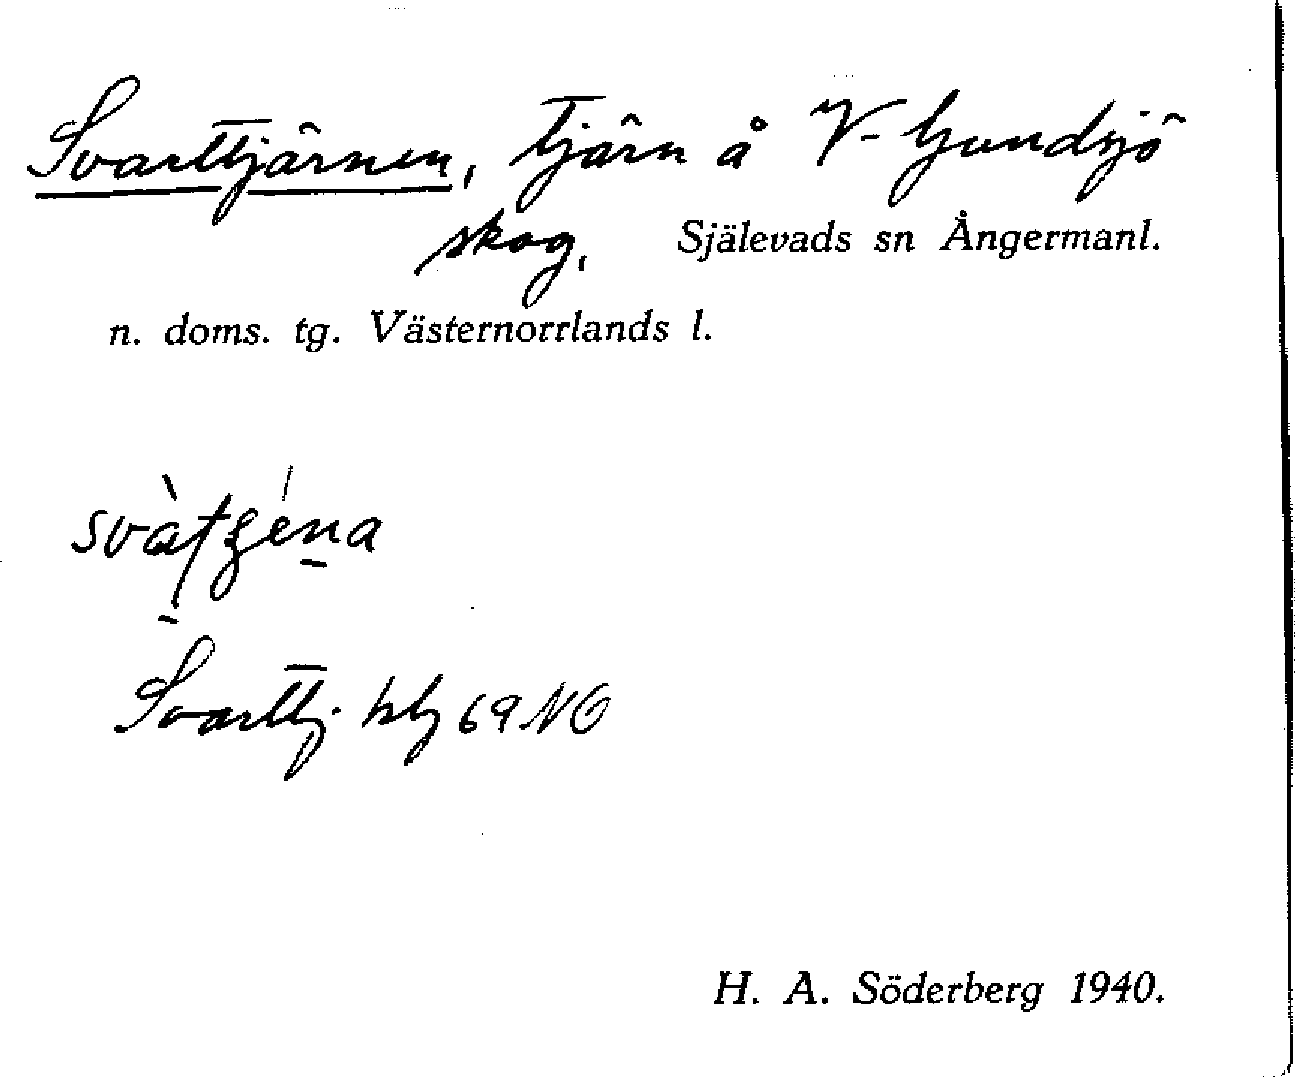 Svarttjärnen, tjärn å V- Gundsjö
skog, Själevads sn Ångermanl.
n. doms. tg. Västernorrlands l.
Svarttj. 69 NO
H. A. Söderberg 1940.